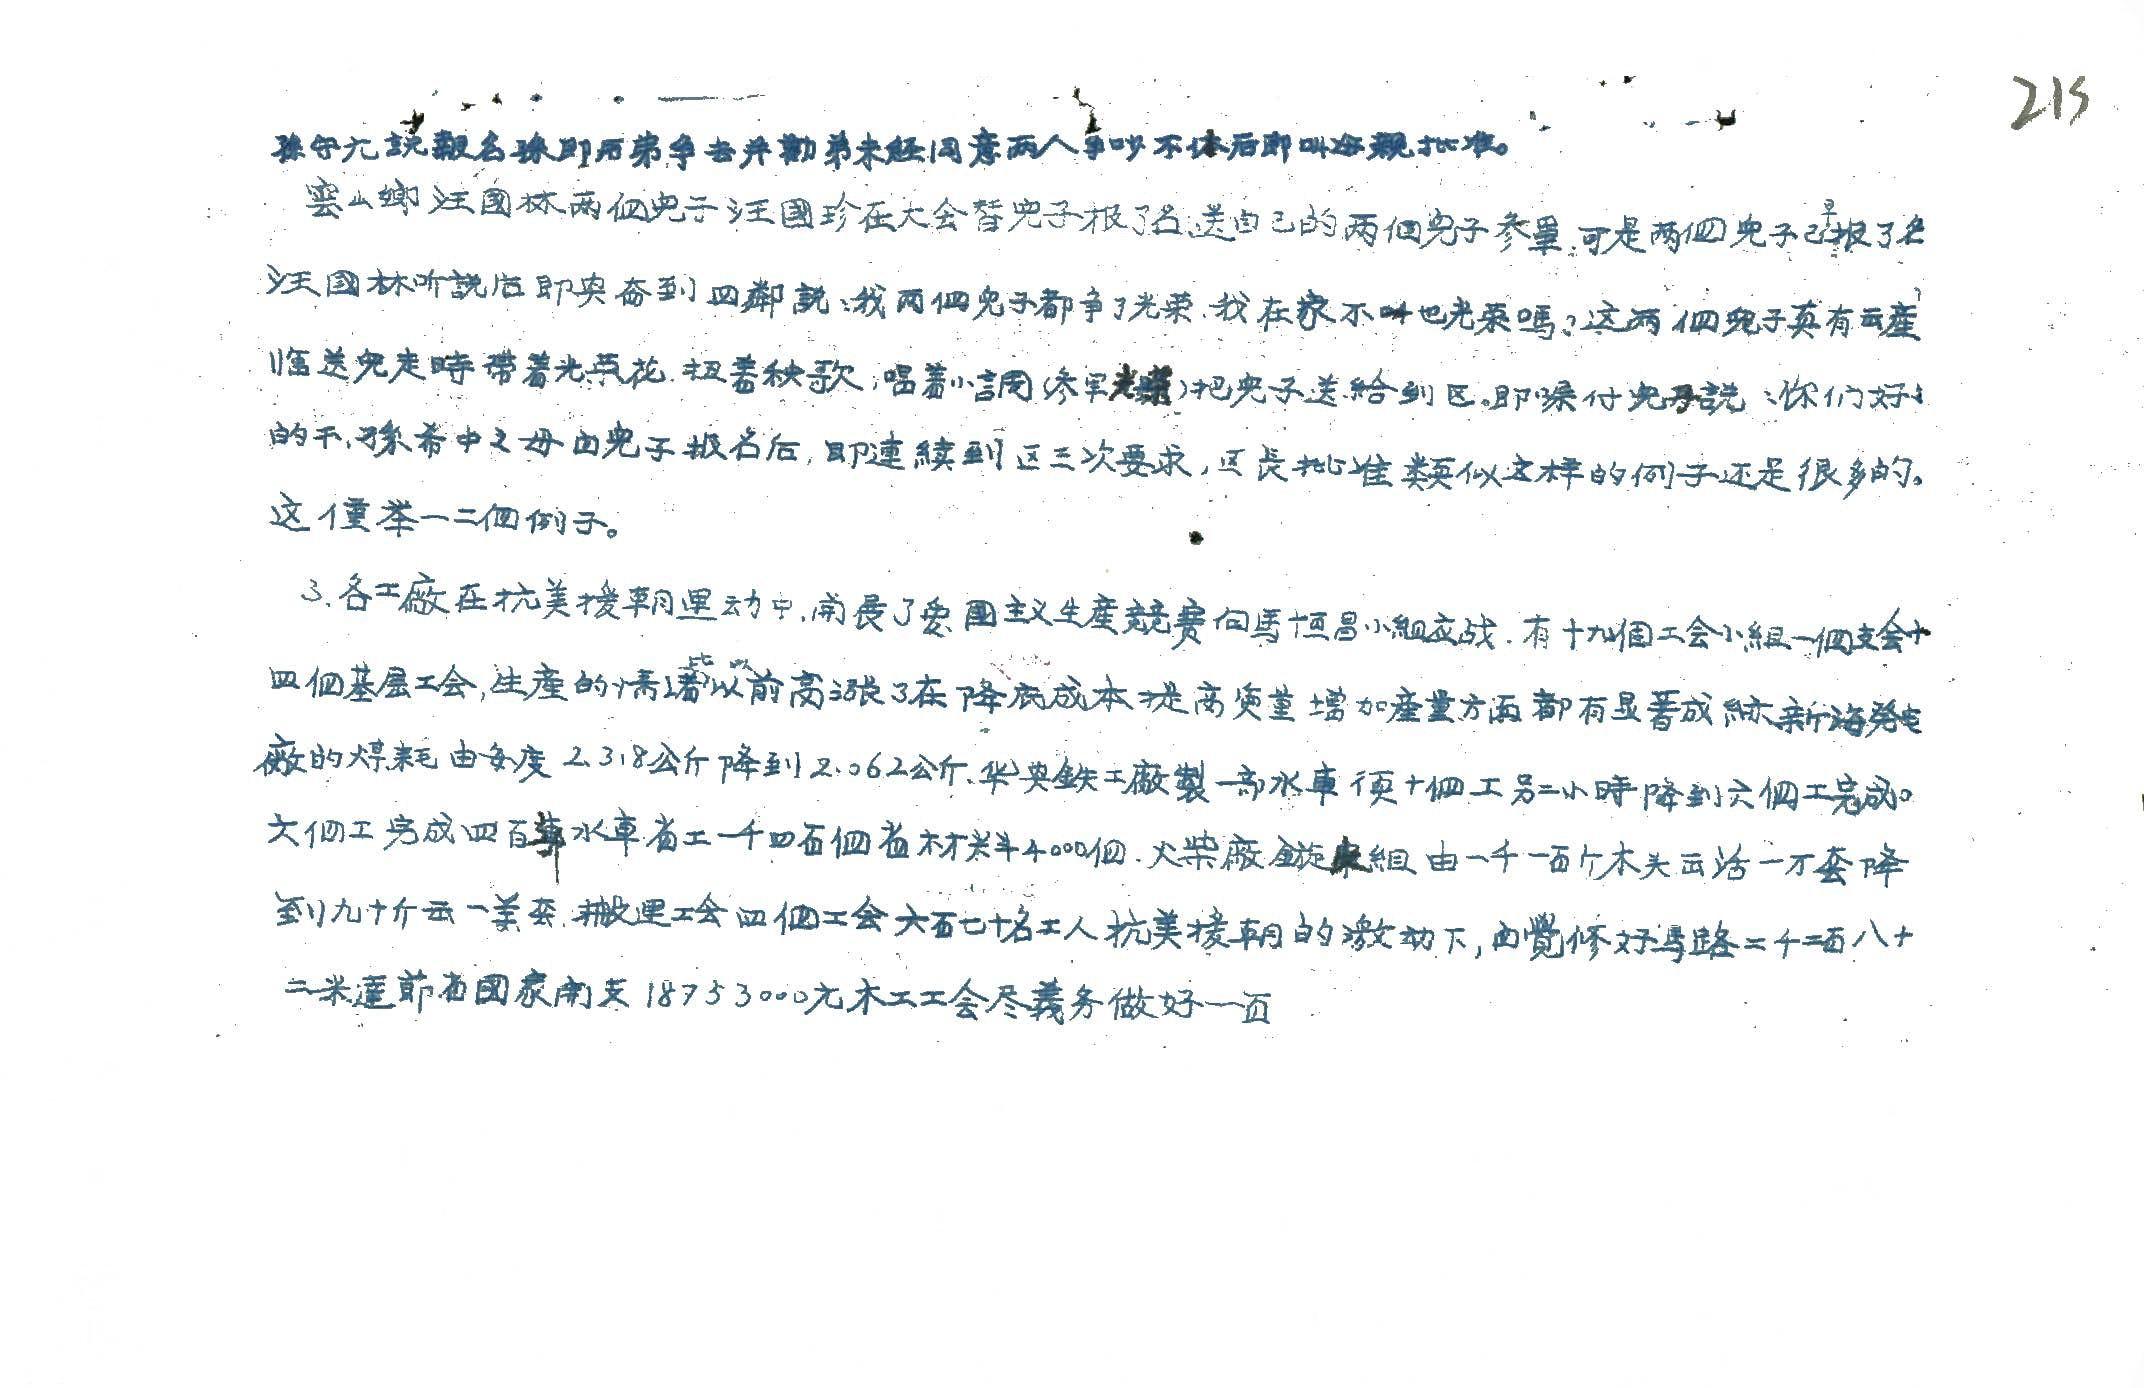 215
孫守九說報名孫即后弟争去并勸弟未經同意两人争吵不休后即叫母親批准。
雲山鄉汪國林两個兒子汪國珍在大会替兒子报了名送自己的两個兒子参軍.可是两個兒子已早报了名
汪國林听說后即兴奋到四鄰說:我两個兒子都争了光荣.我在家不叫也光荣嗎?这两個兒子真有云産
临送兒走時带着光荣花.扭着秧歌,唱着小調(参军光榮)把兒子送給到区。即嘱付兒子說:你们好好
的干,孫希中之母由兒子报名后,即連續到区三次要求,区長批准類似这样的例子还是很多的。
这僅举一二個例子。
3.各工廠在抗美援朝運动中,開展了爱國主义生產競賽向馬恒昌小組应战.有十九個工会小組一個支会十
四個基层工会,生產的情緒比以前高漲了在降底成本提高質量增加產量方面都有显著成績新海発电
廠的煤耗由每度2.318公斤降到2.062公斤.华央鉄工廠製一部水車須十個工另二小時降到六個工完成。
六個工完成四百部水車省工一千四百個省材料4000個.火柴廠鏇床組由一千一百斤木头云活一万套降
到九十斤云一美套.搬運工会四個工会六百七十名工人抗美援朝的激动下,由覺修好馬路二千二百八十
二米達節省國家開支18753000元木工工会尽義务做好一页